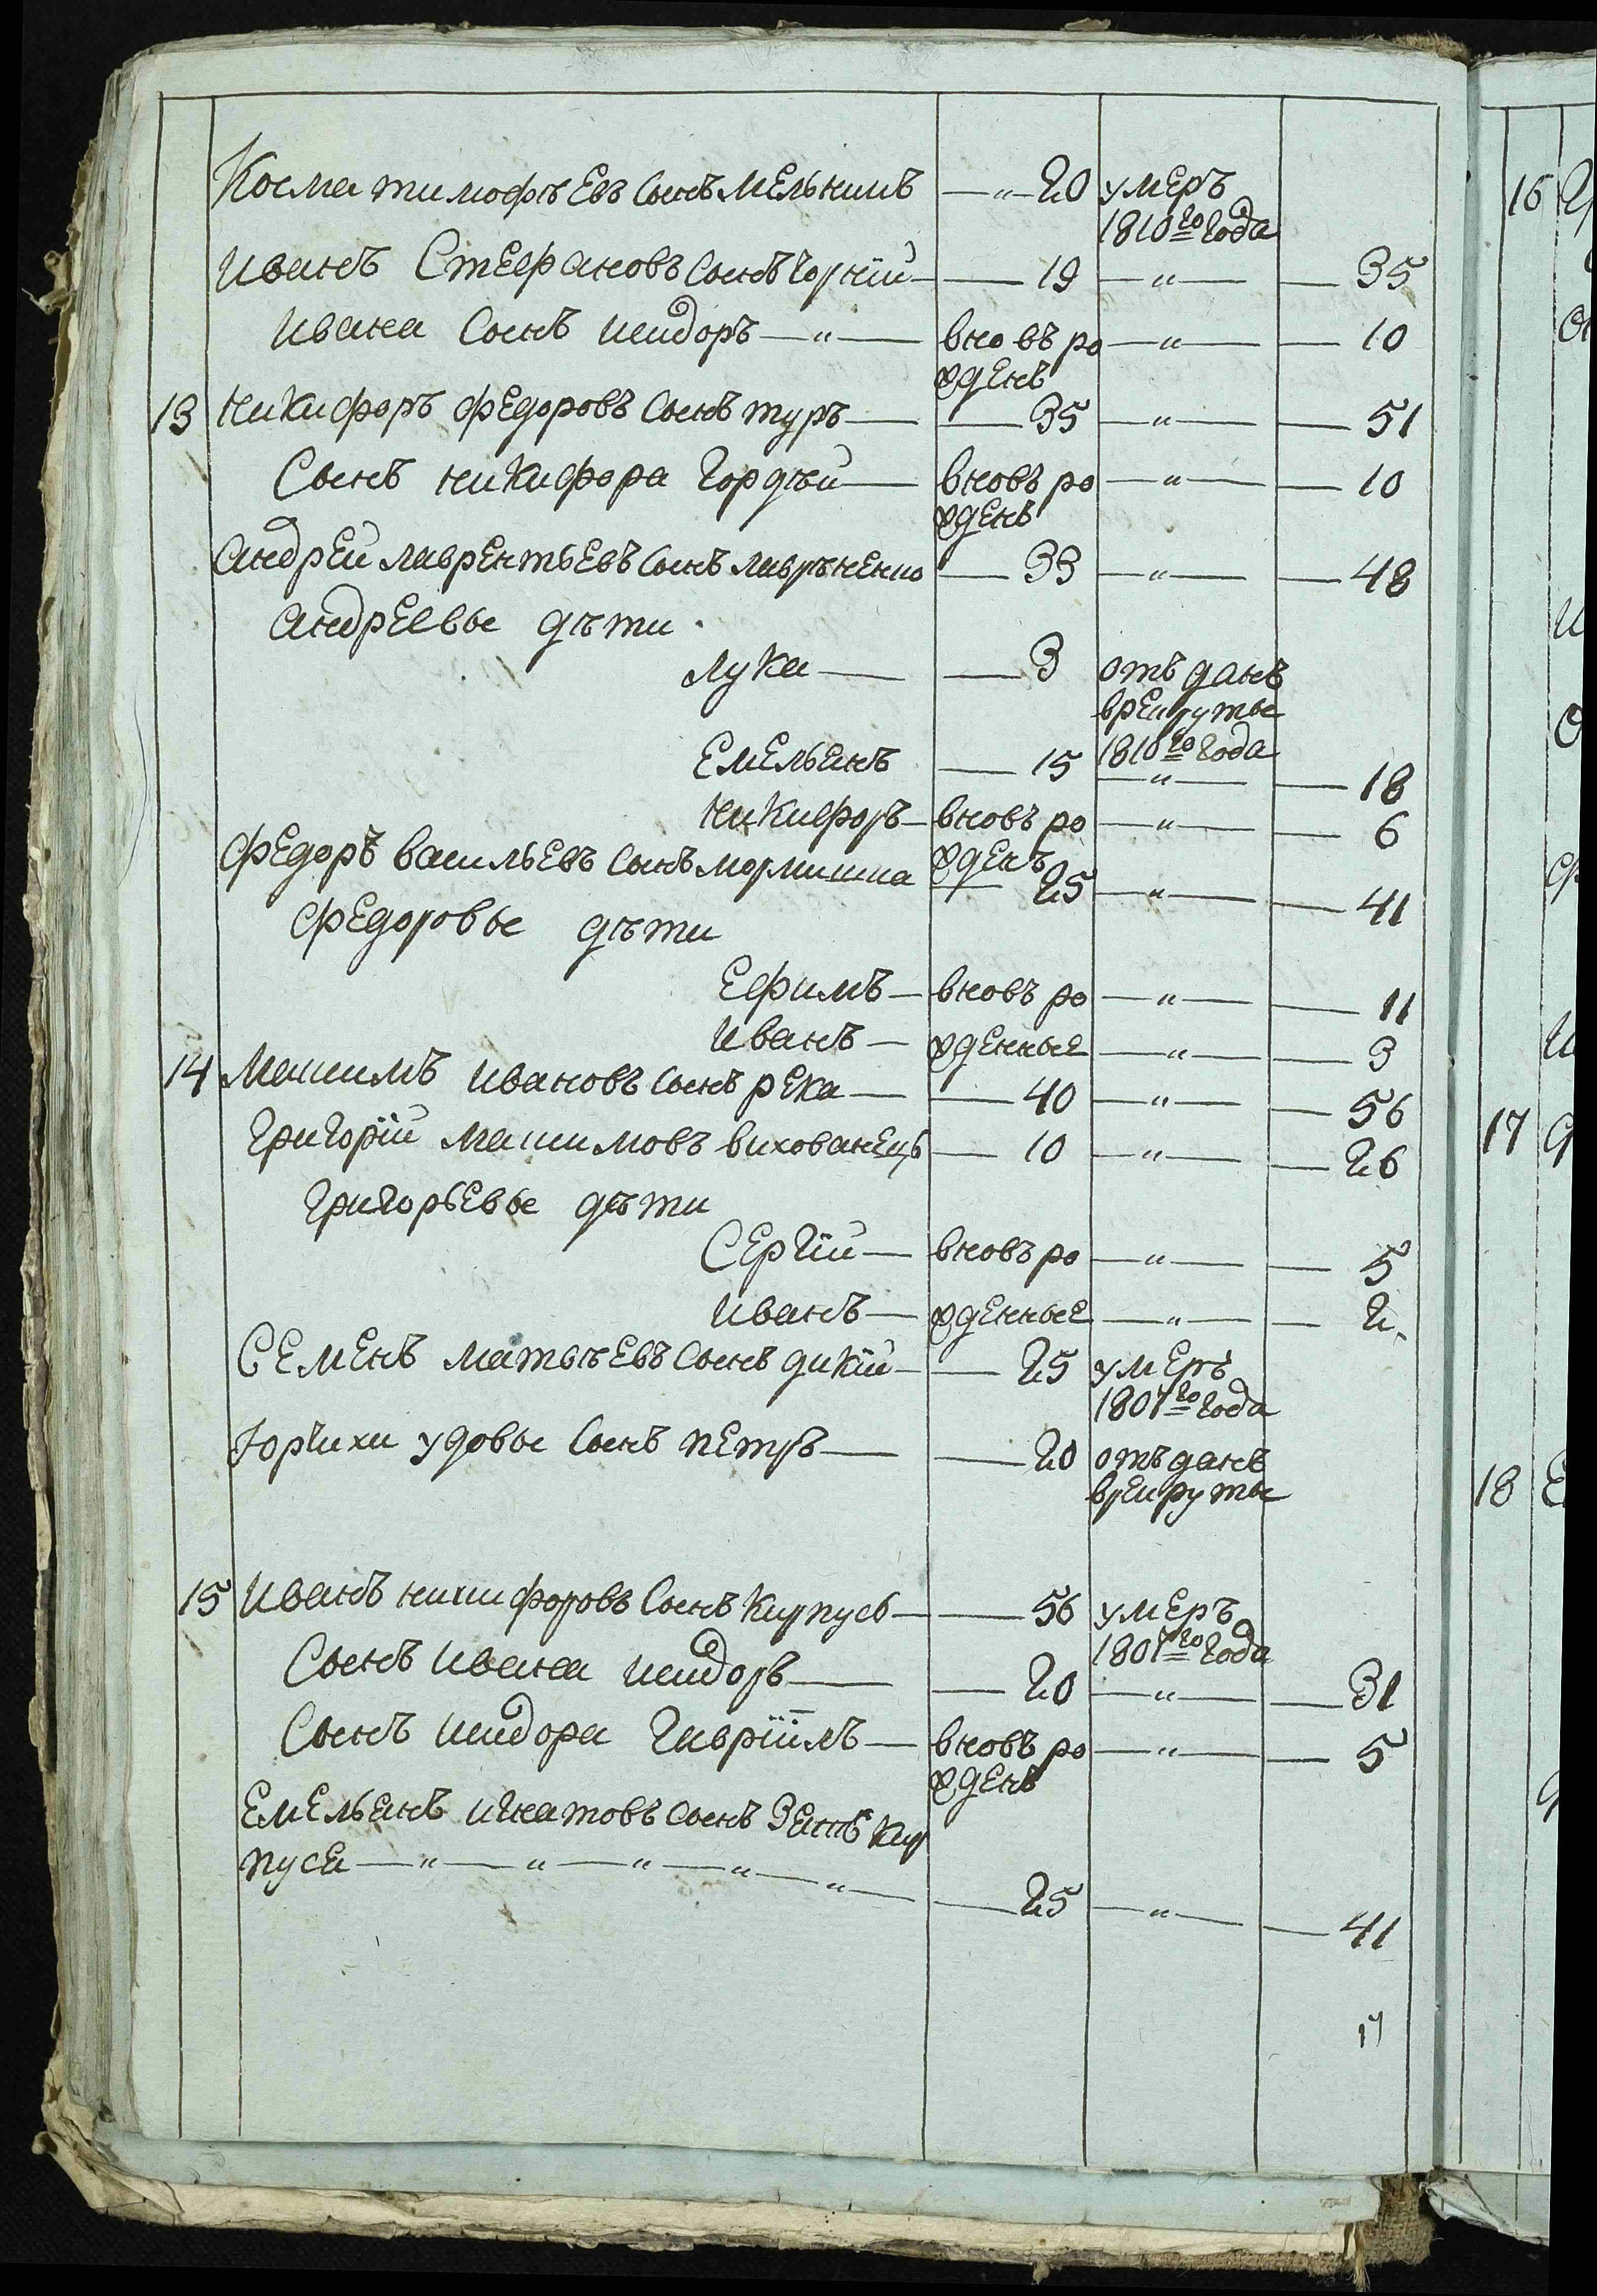 Косма тимофѣевъ сынъ мельникъ —"— 20 умеръ
1810го года
Иванъ Стефановъ сынъ чорній — 19 —"— 35
Ивана сынъ исидоръ —"— вновь ро —"— 10
жденъ
13 никифоръ федоровъ сынъ туръ — 35 —"— 51
Сынъ никифора Гордѣй — вновь ро —"— 10
жденъ
Андрей лаврентьевъ сынъ лавренѣнко — 33 —"— 48
Андреевые дѣти
лука — 3 отъданъ
врекруты
1810го года
Емельянъ — 15 —"— 18
никифоръ — вновъ ро —"— 6
жденъ
федоръ васильевъ сынъ — 25 —"— 41
федоровые дѣти
Ефимъ — вновъ ро —"— 11
Иванъ — жденные —"— 3
14 Максимъ ивановъ сынъ река — 40 —"— 56
Григорій максимовъ вихованецъ — 10 —"— 26
Григорьевые дѣти
Сергій — вновъ ро —"— 5
Иванъ — жденные —"— 2
Семенъ матвѣевъ сынъ дикій — 25 умеръ
1807го года
удовы сынъ петръ — 20 отъданъ
врекруты
15 Иванъ никифоровъ сынъ карпусь — 56 умеръ
1807го года
Сынъ ивана исидоръ — 20 —"— 31
Сынъ исидора Гавріилъ — вновъ ро —"— 5
жденъ
Емельянъ игнатовъ сынъ зять кар
пуса —"—"—"—"—"— 25 —"— 41
17
16
17
18